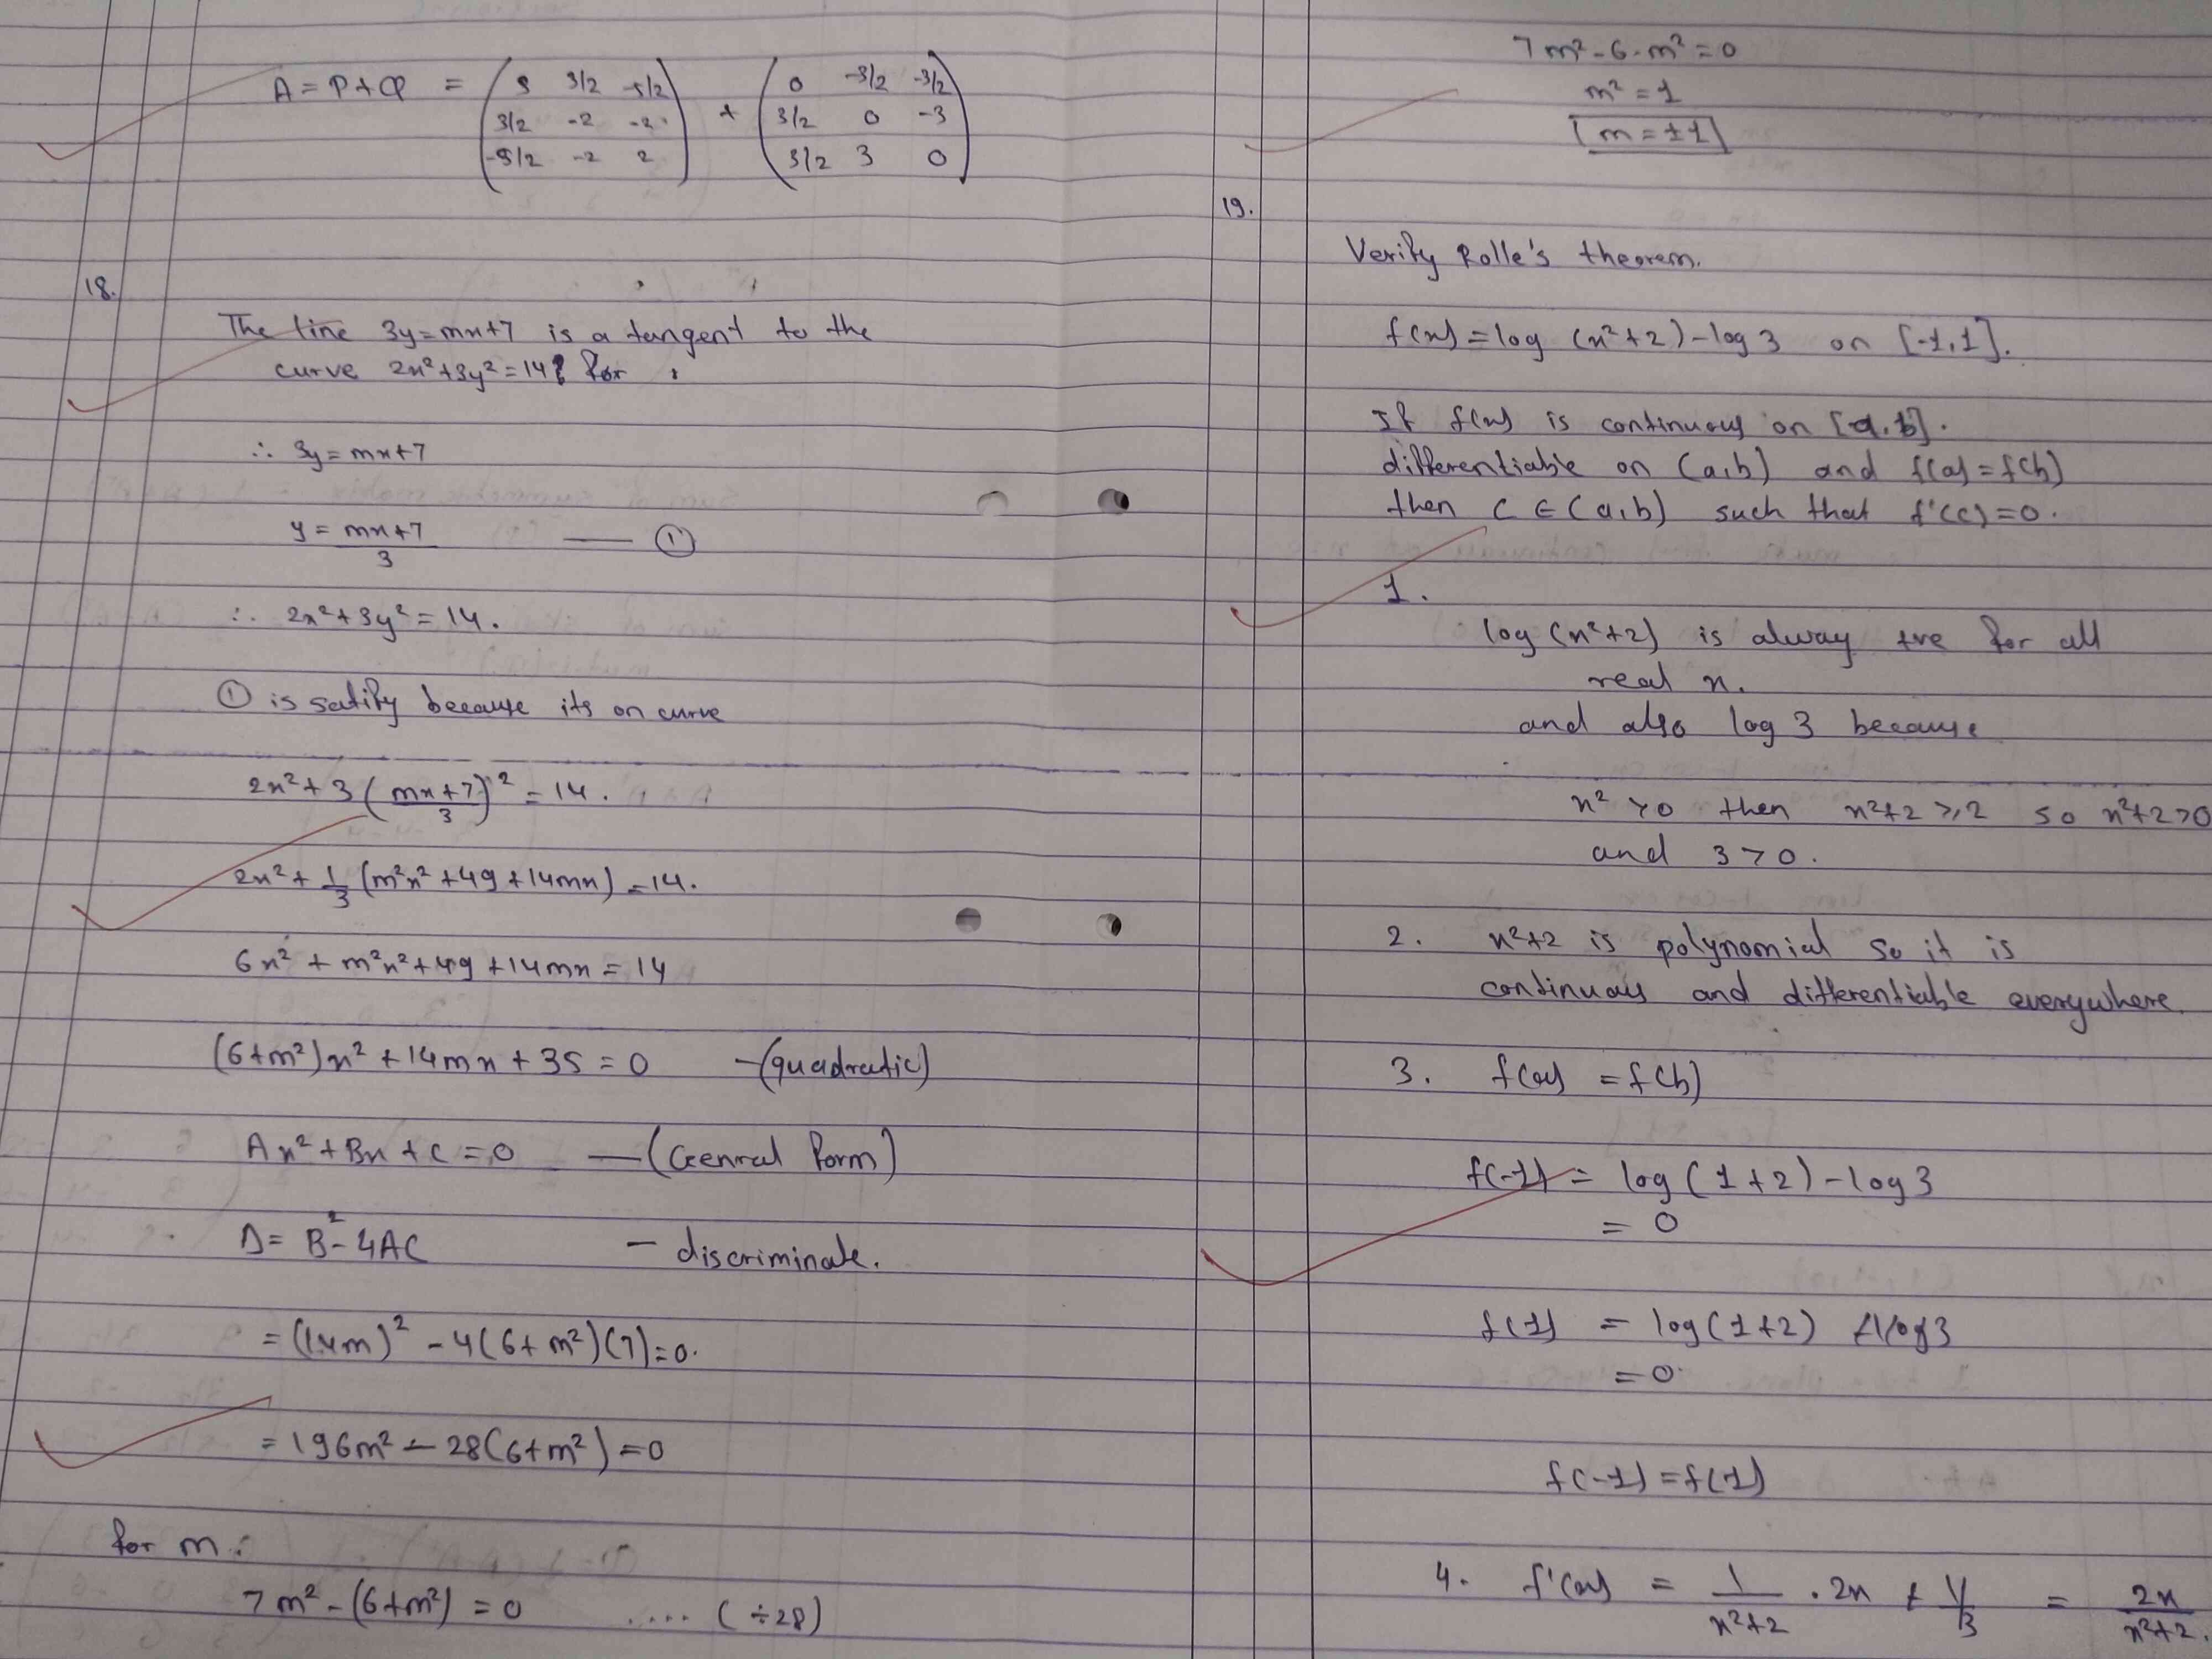 A = P + Q = (5 3/2 -5/2 3/2 -2 -2 -5/2 -2 2) + (0 -3/2 -3/2 3/2 0 -3 3/2 3 0)
18.
The line 3y = mx+7 is a tangent to the
curve 2x²+3y² = 14 for
∴ 3y = mx+7
y = mx+7/3 — ①
∴ 2x²+3y² = 14.
① is satify because its on curve
2x² + 3(mx+7/3)² = 14.
2x² + 1/3 (m²x² + 49 + 14mx) = 14.
6x² + m²x² + 49 + 14mx = 14
(6+m²)x² + 14mx + 35 = 0 -(quadratic)
Ax² + Bx + C = 0 — (Genral form)
D = B² - 4AC - discriminate.
= (14m)² - 4(6+m²)(7) = 0.
= 196m² - 28(6+m²) = 0
for m:
7m² - (6+m²) = 0 .... (÷28)
7m² - 6 - m² = 0
m² = 1
m = ±1
19.
Verify Rolle's theorem.
f(x) = log (x²+2) - log 3 on [-1,1].
If f(x) is continuous on [a,b].
differentiable on (a,b) and f(a) = f(b)
then C ∈ (a,b) such that f'(c) = 0.
1.
log (x²+2) is alway +ve for all
real x.
and also log 3 because
x² > 0 then x²+2 ≥ 2 so x²+2 > 0
and 3 > 0.
2. x²+2 is polynomial so it is
continuous and differentiable everywhere.
3. f(a) = f(b)
f(-1) = log (1+2) - log 3
= 0
f(1) = log (1+2) - log 3
= 0.
f(-1) = f(1)
4. f'(x) = 1/x²+2 . 2x + 1/3 = 2x/x²+2.